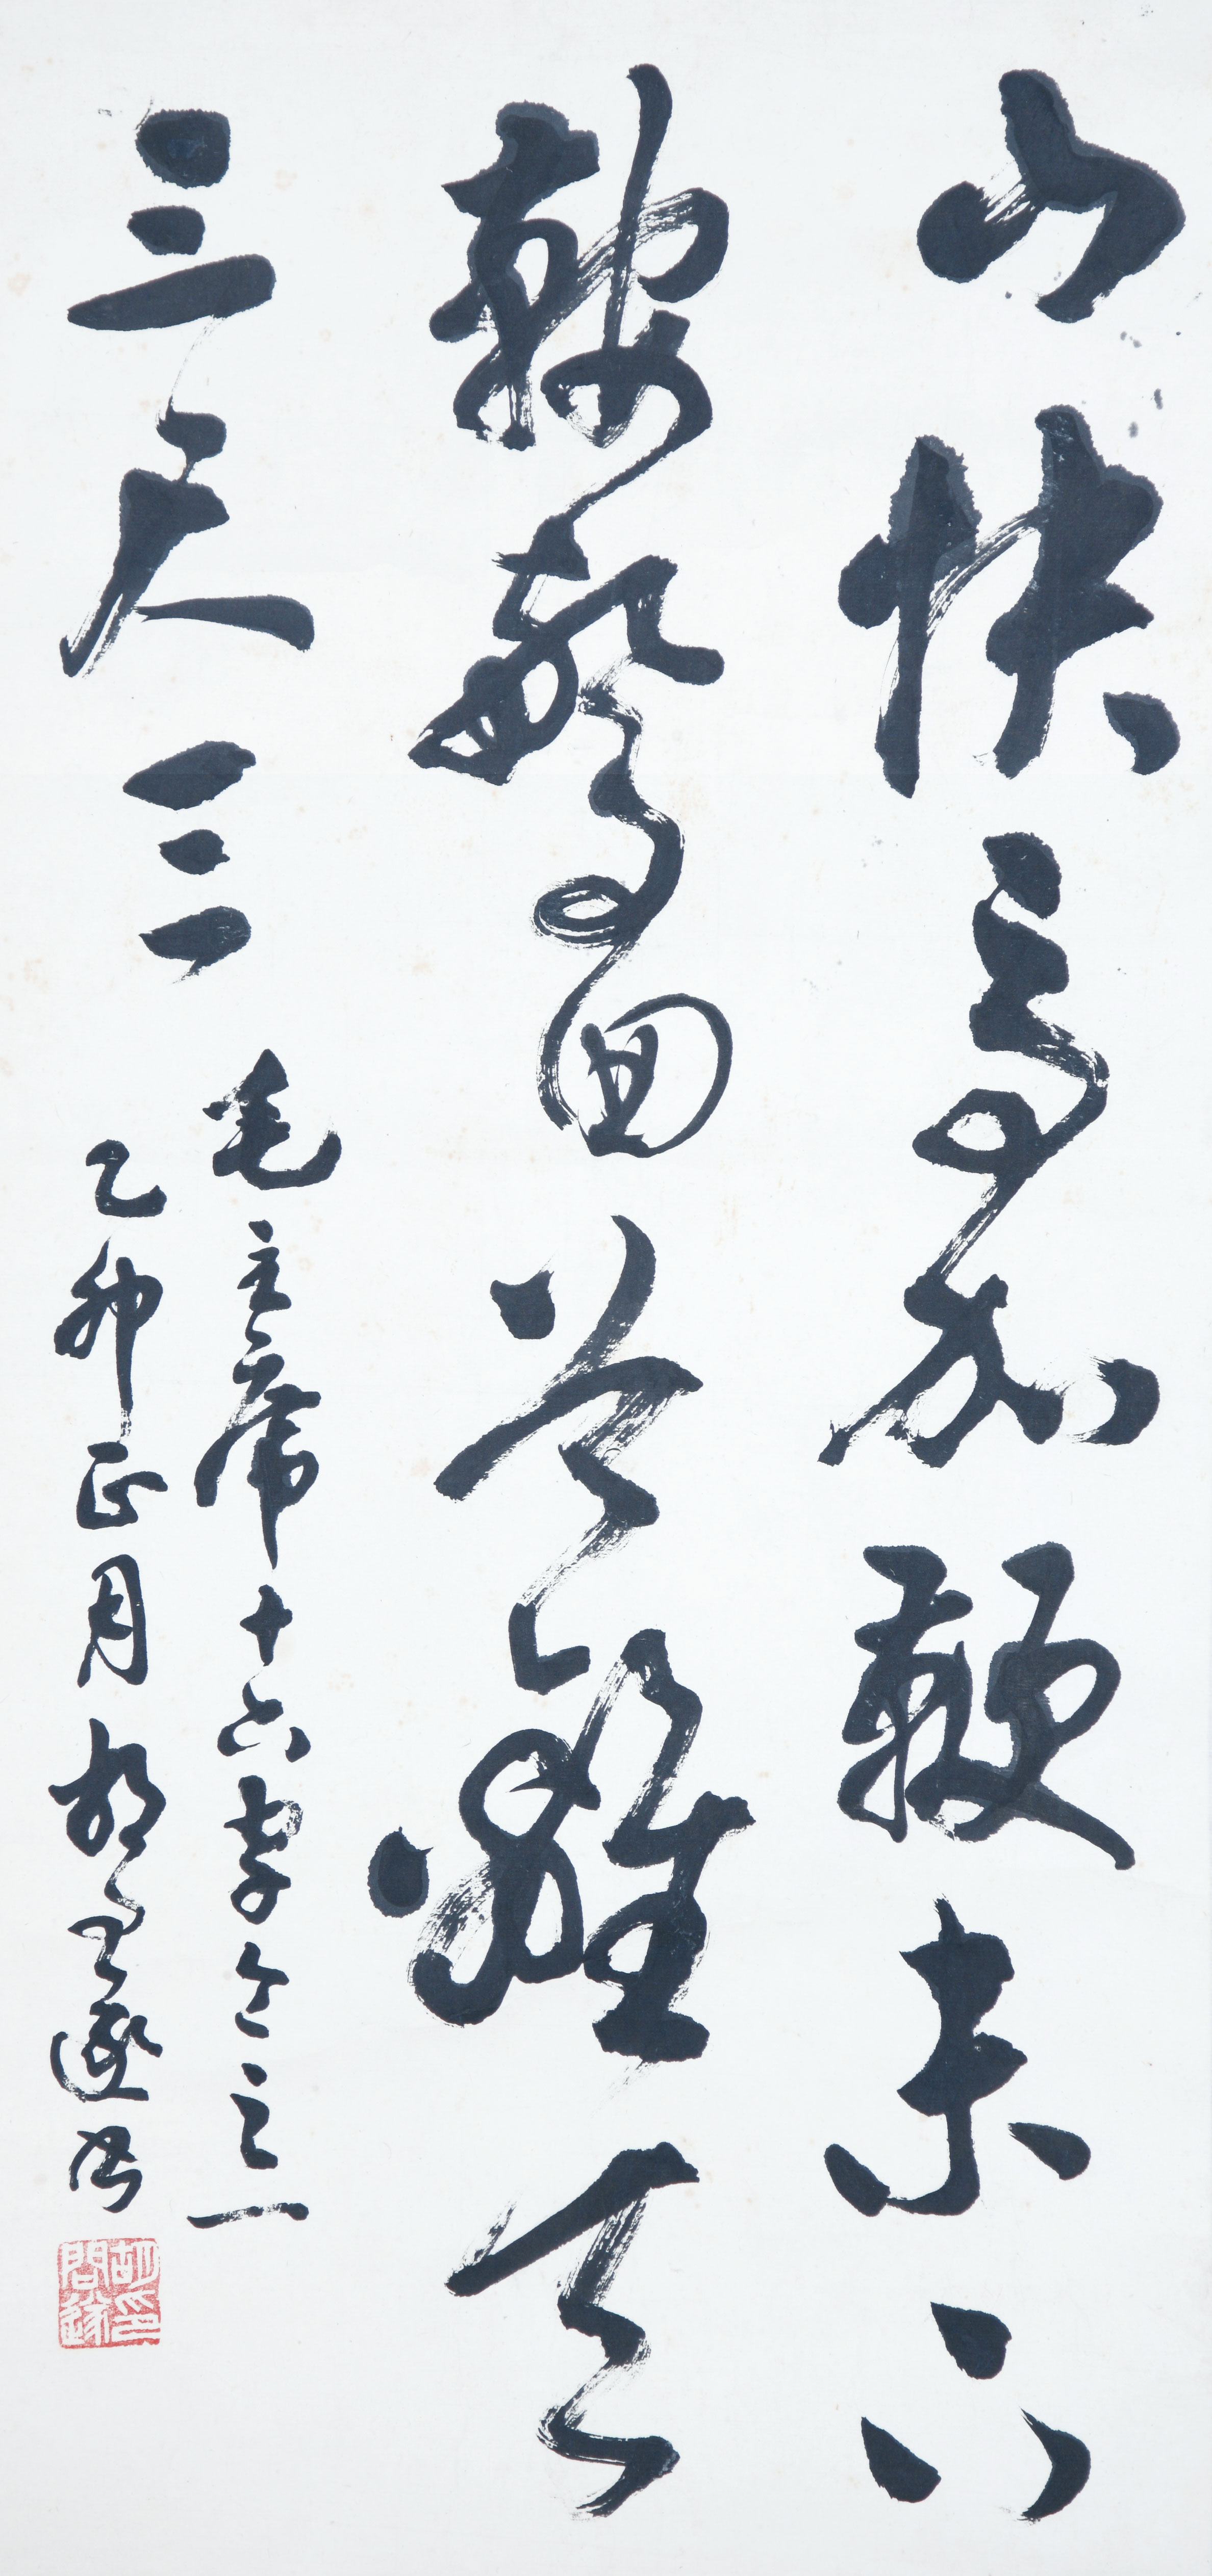 山快馬加鞭未下
鞍驚回首離天
三尺三
毛主席十六字令之一
乙卯正月胡問遂书
胡印
問遂